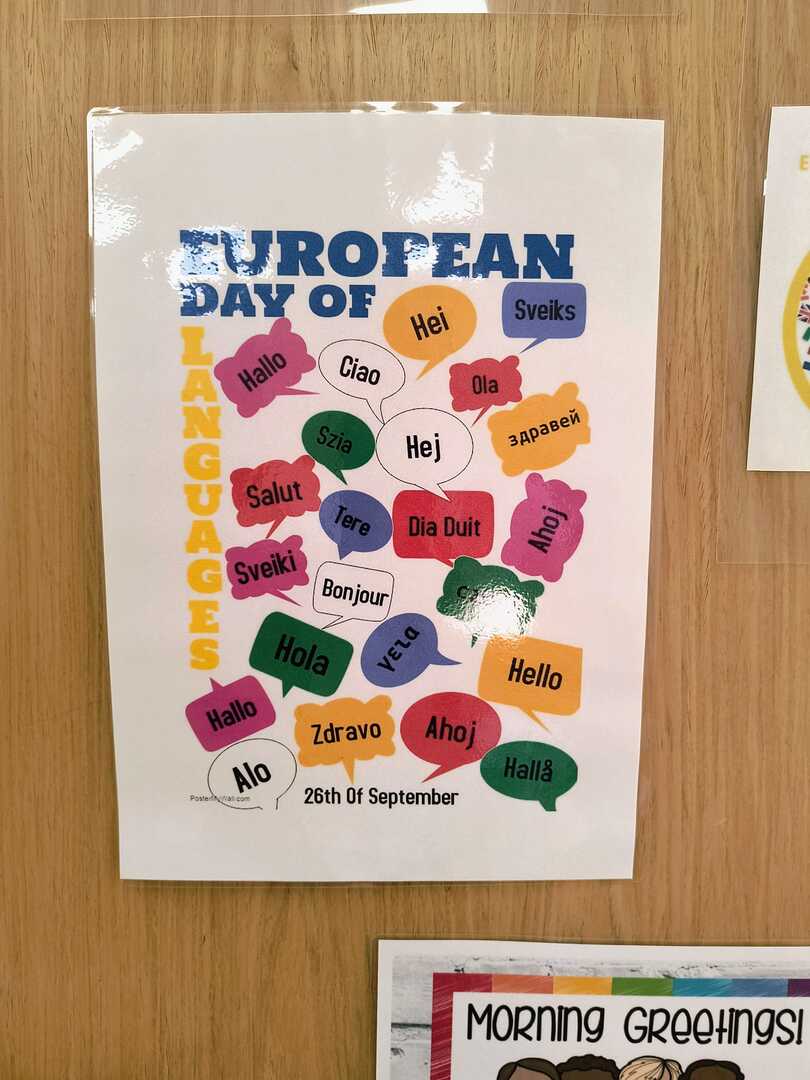 EUROPEAN
DAY OF
LANGUAGES
Hei
Sveiks
Hallo
Ciao
Ola
Szia
Hej
здравей
Salut
Tere
Dia Duit
Ahoj
Sveiki
Bonjour
Hola
γεια
Hello
Hallo
Zdravo
Ahoj
Alo
Hallå
PosterMyWall.com
26th Of September
MORNING GREETINGS!